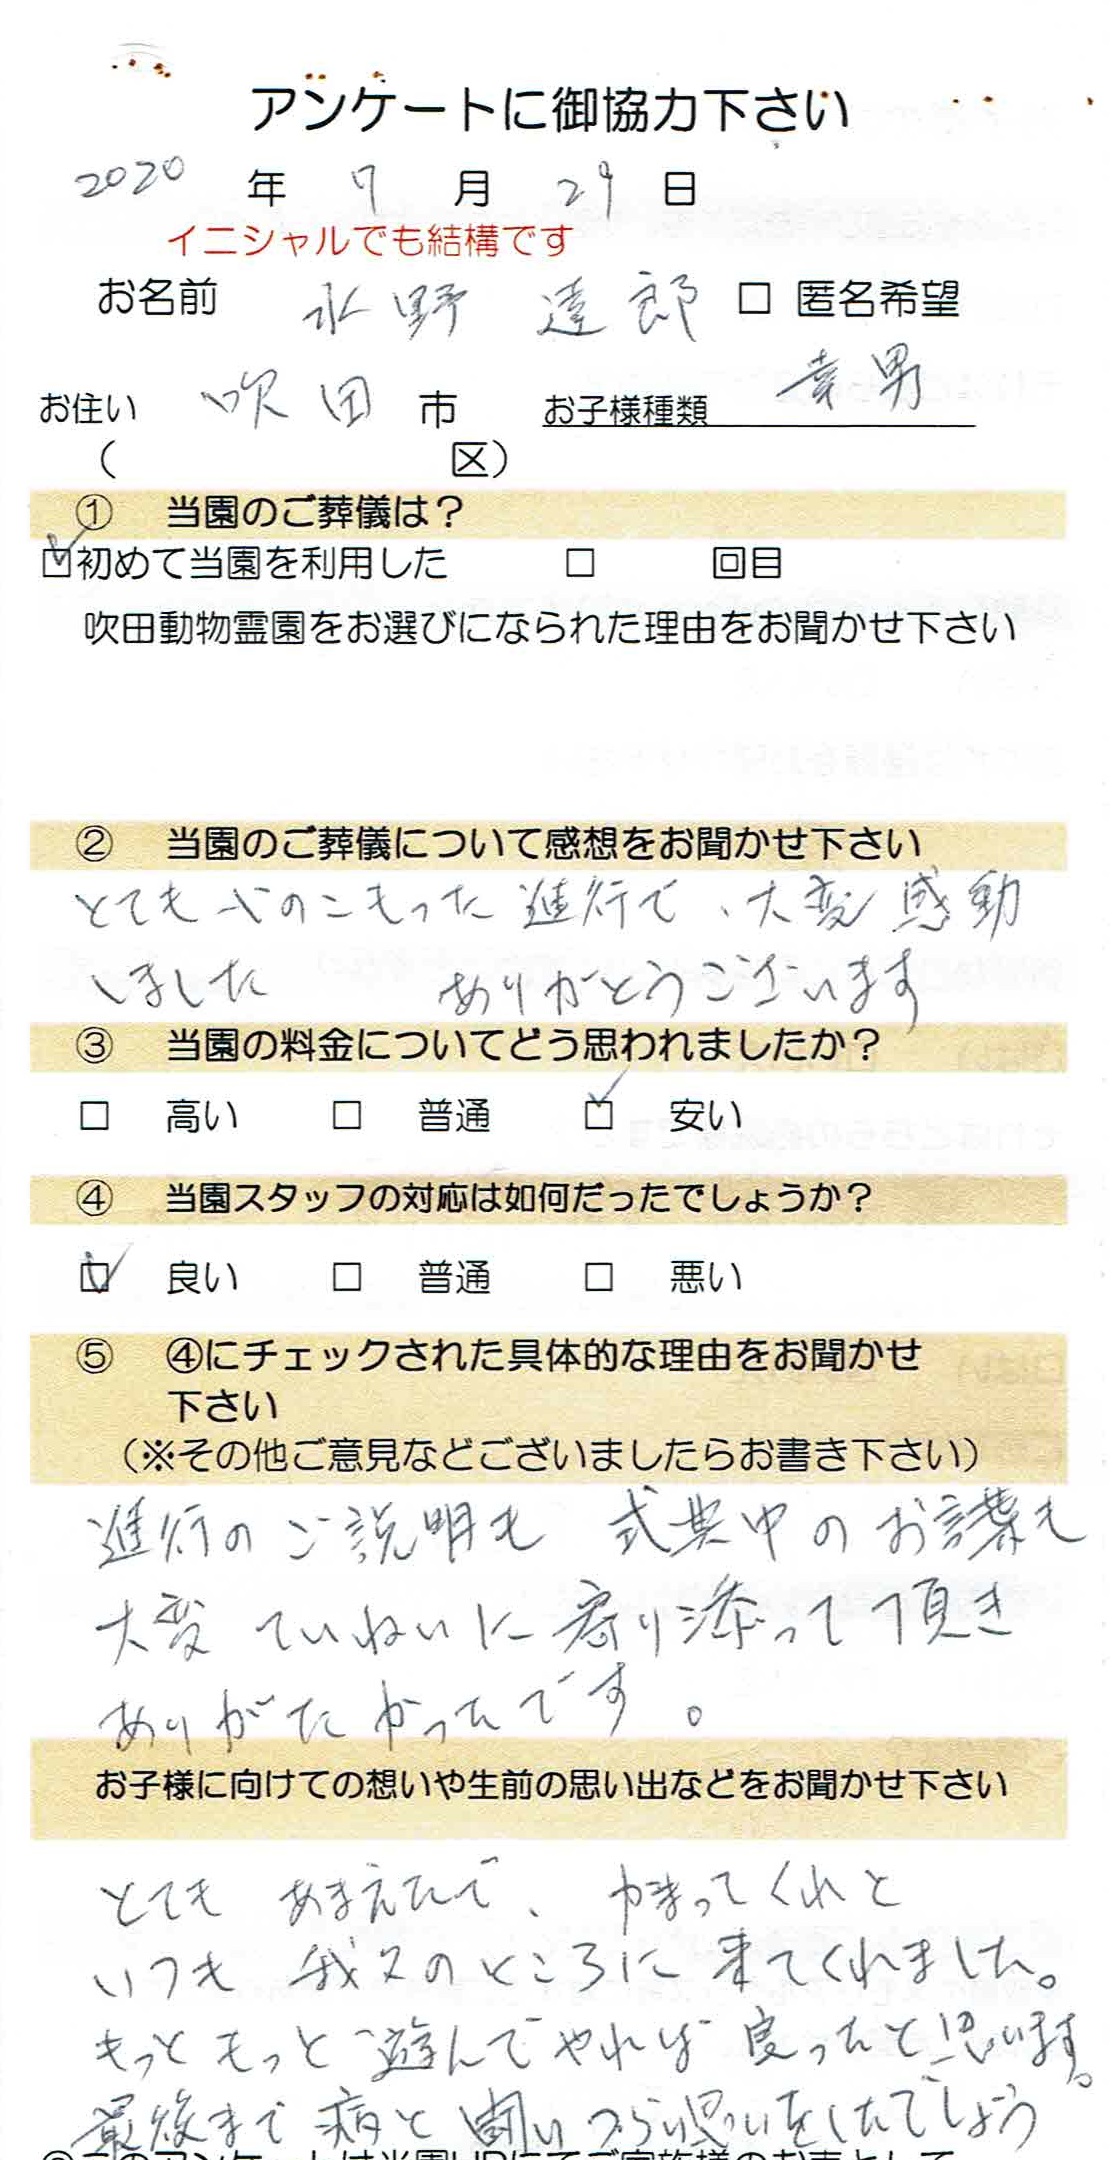 アンケートに御協力下さい
2020 年 7 月 29 日
イニシャルでも結構です
お名前 水野 達郎 □ 匿名希望
お住い 吹田 市 お子様種類 幸男
( 区)
① 当園のご葬儀は？
☑初めて当園を利用した □ 回目
吹田動物霊園をお選びになられた理由をお聞かせ下さい
② 当園のご葬儀について感想をお聞かせ下さい
とても心のこもった進行で、大変感動
しました ありがとうございます
③ 当園の料金についてどう思われましたか？
□ 高い □ 普通 ☑ 安い
④ 当園スタッフの対応は如何だったでしょうか？
☑ 良い □ 普通 □ 悪い
⑤ ④にチェックされた具体的な理由をお聞かせ
下さい
（※その他ご意見などございましたらお書き下さい）
進行のご説明も 式典中のお言葉も
大変 ていねいに寄り添って頂き
ありがたかったです。
お子様に向けての想いや生前の思い出などをお聞かせ下さい
とても あまえたで、かまってくれと
いつも 我々のところに来てくれました。
もっともっと遊んでやれば良ったと思います。
最後まで病と闘いつらい思いをしたでしょう